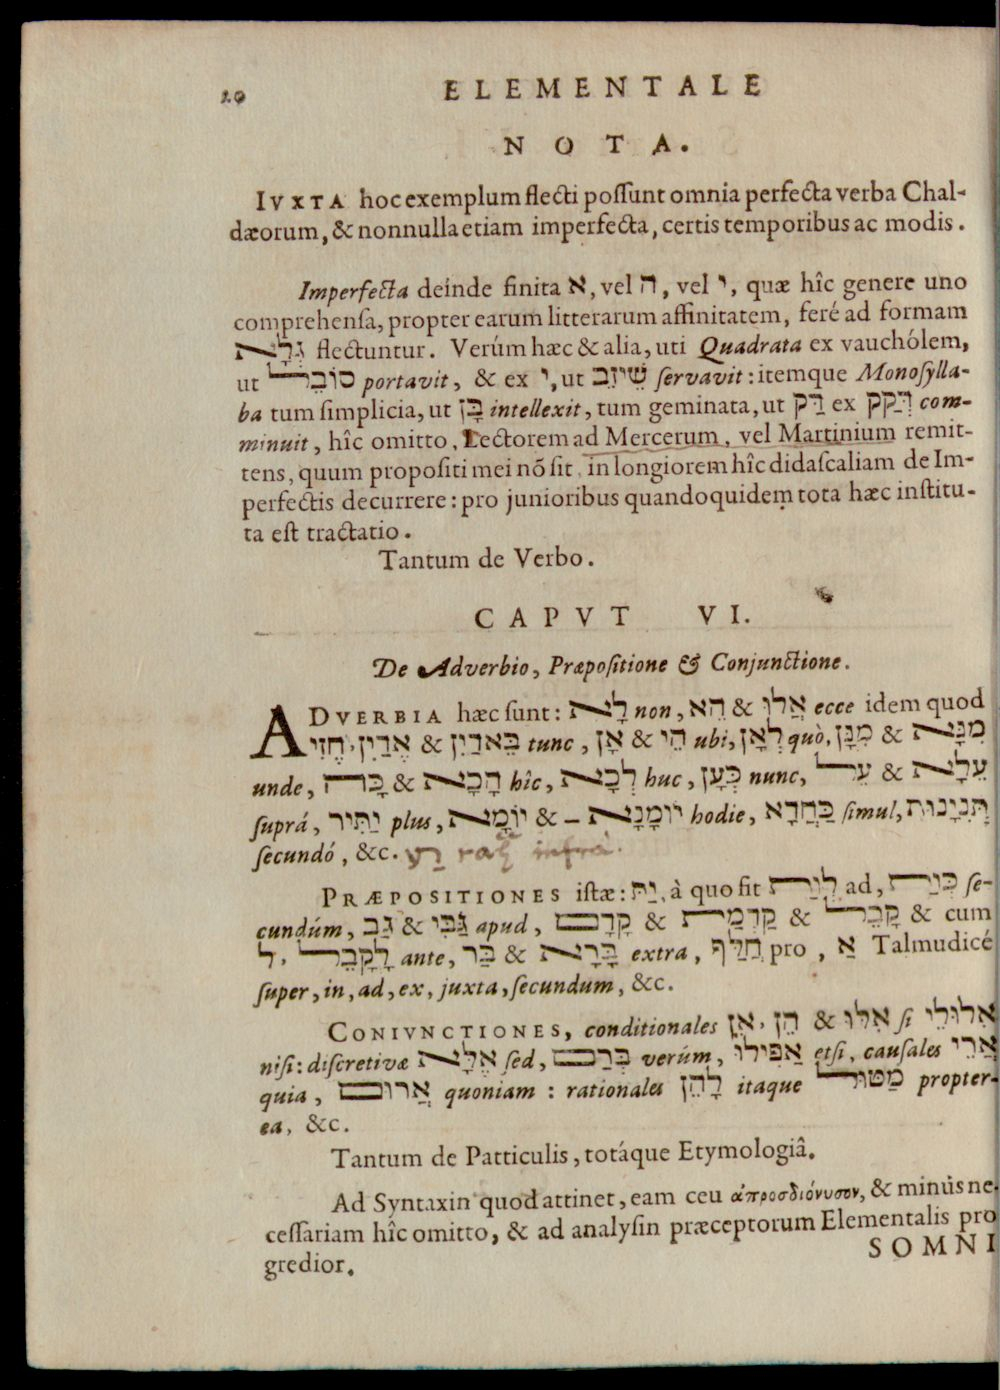 20 ELEMENTALE
NOTA.
IVXTA hoc exemplum flecti possunt omnia perfecta verba Chal-
dæorum, & nonnulla etiam imperfecta, certis temporibus ac modis.
Imperfecta deinde finita א, vel ה, vel י, quæ hîc genere uno
comprehensa, propter earum litterarum affinitatem, feré ad formam
גְּלָא flectuntur. Verúm hæc & alia, uti Quadrata ex vauchólem,
ut סוֹבֵל portavit, & ex י, ut שֵׁיזִב servavit: itemque Monosylla-
ba tum simplicia, ut בָּן intellexit, tum geminata, ut דַּק ex דְּקַק com-
minuit, hîc omitto, Lectorem ad Mercerum, vel Martinium remit-
tens, quum propositi mei nõ sit, in longiorem hîc didascaliam de Im-
perfectis decurrere: pro junioribus quandoquidem tota hæc institu-
ta est tractatio.
Tantum de Verbo.
CAPVT VI.
De Adverbio, Præpositione & Conjunctione.
ADVERBIA hæc sunt: לָא non, הֵא & אֲלוּ ecce idem quod
חֲזִי, אֱדַיִן & בֵּאדַיִן tunc, אָן & הֵי ubi, לְאָן quò, מִנָּן & מִנָּא
unde, כָּה & הָכָא hîc, לְכָא huc, כְּעָן nunc, עֵל & עֵלָא
suprá, יַתִּיר plus, יוֹמָא & – יוֹמָנָא hodie, כַּחֲדָא simul, תִּנְיָנוּת
secundó, &c. רַע infrà.
PRÆPOSITIONES istæ: יַת, à quo fit לְוַת ad, כְּוַת se-
cundúm, גַּב & גַּבֵּי apud, קֳדָם & קַדְמַת & קָבֵל & cum
ל, לָקֳבֵל ante, בַּר & בָּרָא extra, חֲלַף pro, אַ Talmudicé
super, in, ad, ex, juxta, secundum, &c.
CONIVNCTIONES, conditionales אֵן, הֵן & אִלּוּ si אִלּוּלֵי
nisi: discretivæ אֶלָּא sed, בְּרַם verúm, אֲפִילוּ etsi, causales אֲרֵי
quia, אֲרוּם quoniam: rationales לָהֵן itaque מַטּוּל propter-
ea, &c.
Tantum de Patticulis, totáque Etymologiâ.
Ad Syntaxin quod attinet, eam ceu ἀπροσδιόνυσον, & minùs ne-
cessariam hîc omitto, & ad analysin præceptorum Elementalis pro
gredior.
SOMNI